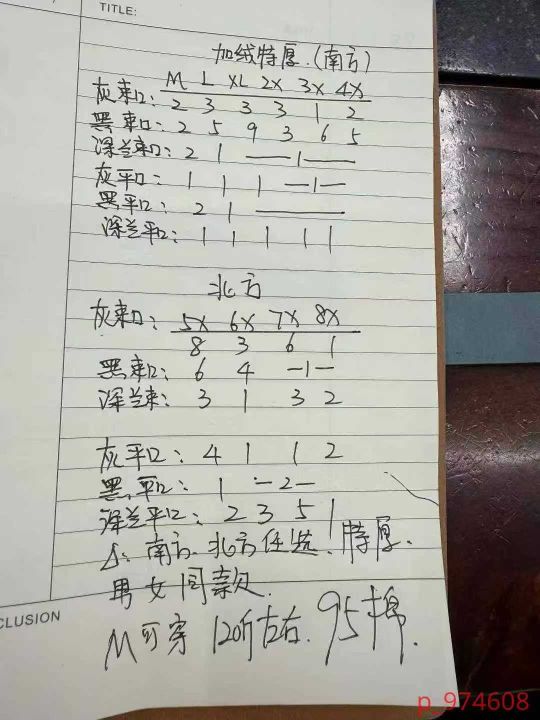 TITLE:
加绒特厚.(南方)
M L XL 2X 3X 4X
灰束口: 2 3 3 3 1 2
黑束口: 2 5 9 3 6 5
深兰束口: 2 1 — 1 —
灰平口: 1 1 1 — 1 —
黑平口: 2 1 ——
深兰平口: 1 1 1 1 1
北方
灰束口: 5X 6X 7X 8X
8 3 6 1
黑束口: 6 4 — 1 —
深兰束: 3 1 3 2
灰平口: 4 1 1 2
黑.平口: 1 — 2 —
深兰平口: 2 3 5 1
△: 南方.北方任选.特厚.
男女同款.
CLUSION
M可穿 120斤左右. 95棉.
p_974608